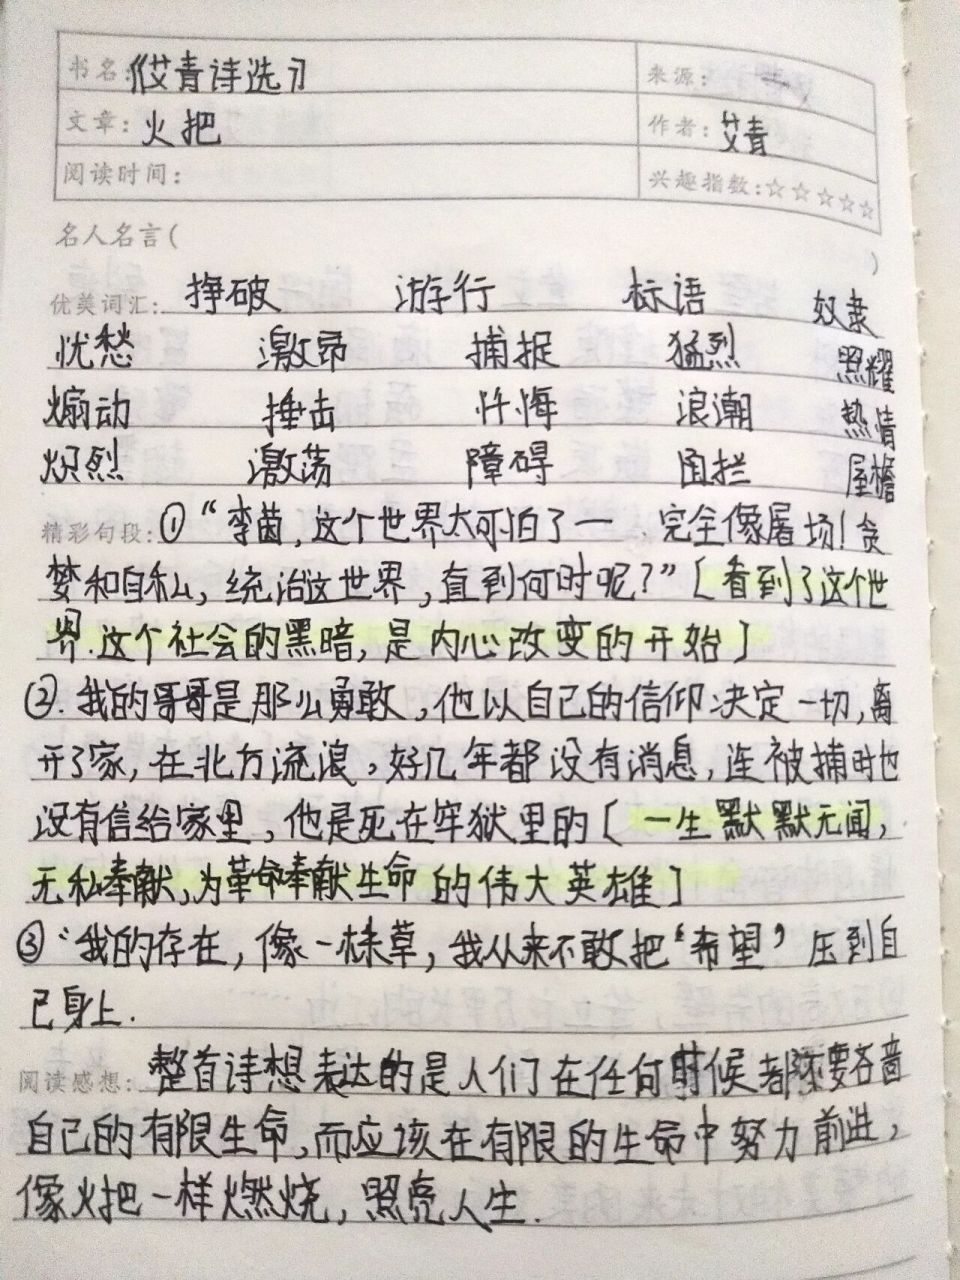 书名:《艾青诗选》 来源:
文章: 火把 作者: 艾青
阅读时间: 兴趣指数:☆☆☆☆☆
名人名言( )
优美词汇: 挣破 游行 标语 奴隶
忧愁 激昂 捕捉 猛烈 照耀
煽动 捶击 忏悔 浪潮 热情
炽烈 激荡 障碍 围拦 屋檐
精彩句段: ①“李茵,这个世界太可怕了一 完全像屠场!贪
婪和自私,统治这世界,直到何时呢?”[看到了这个世
界.这个社会的黑暗,是内心改变的开始]
②.我的哥哥是那么勇敢,他以自己的信仰决定一切,离
开了家,在北方流浪,好几年都没有消息,连被捕时也
没有信给家里,他是死在牢狱里的[一生默默无闻,
无私奉献,为革命奉献生命的伟大英雄]
③‘我的存在,像一株草,我从来不敢把‘希望’压到自
己身上.
阅读感想: 整首诗想表达的是人们在任何时候都要吝啬
自己的有限生命,而应该在有限的生命中努力前进,
像火把一样燃烧,照亮人生.